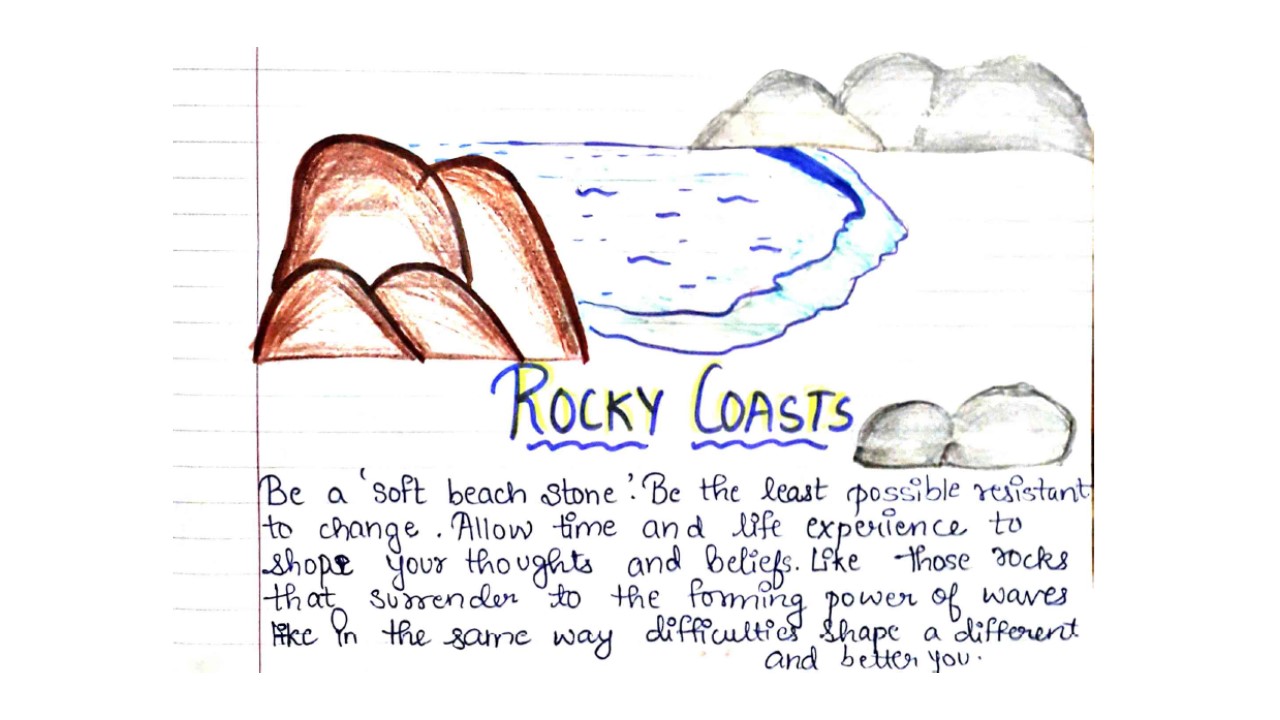 ROCKY COASTS
Be a 'soft beach stone'. Be the least possible resistant
to change. Allow time and life experience to
shope your thoughts and beliefs. Like those rocks
that surrender to the forming power of waves
like in the same way difficulties shape a different
and better you.